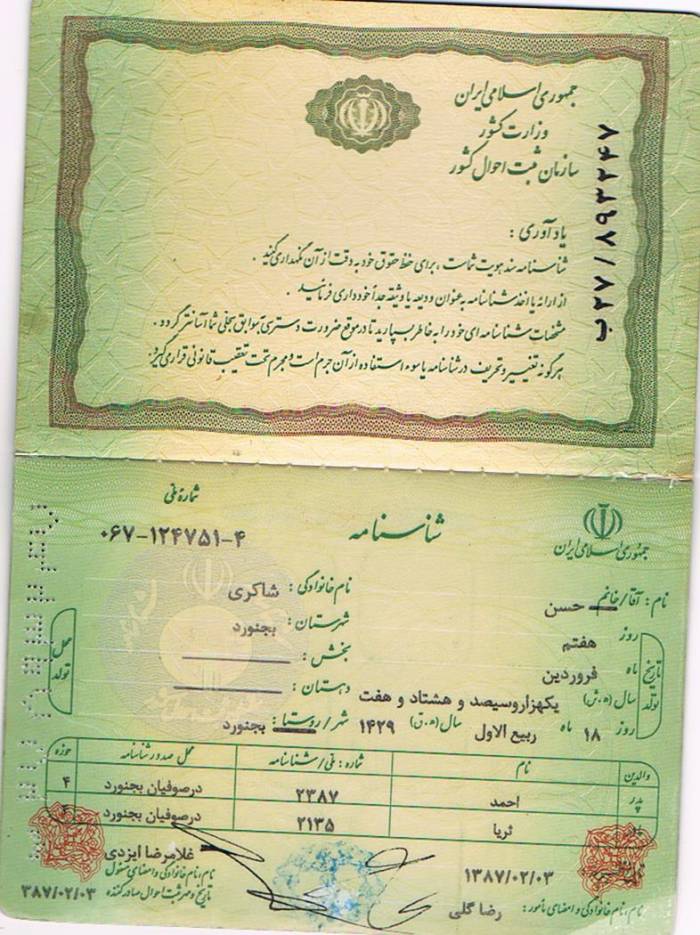 جمهوری اسلامی ایران
وزارت کشور
سازمان ثبت احوال کشور
ب۲۷/۸۹۳۲۴۷
یادآوری :
شناسنامه سند هویت شماست ، برای حفظ حقوق خود به دقت از آن نگهداری کنید .
از ارائه یا اخذ شناسنامه به عنوان ودیعه یا وثیقه جداً خودداری فرمائید .
مشخصات شناسنامه ای خود را به خاطر بسپارید تا در موقع ضرورت دسترسی به سوابق سجلی شما آسانتر گردد .
هرگونه تغییر و تحریف در شناسنامه یا سوء استفاده از آن جرم است و مجرم تحت تعقیب قانونی قرار می گیرد .
جمهوری اسلامی ایران
شناسنامه
شماره ملی
۰۶۷-۱۲۴۷۵۱-۴
نام : آقا/خانم حسن
نام خانوادگی : شاکری
تاریخ تولد
روز هفتم
ماه فروردین
سال (ه.ش) یکهزاروسیصد و هشتاد و هفت
روز ۱۸ ماه ربیع الاول سال (ه.ق) ۱۴۲۹
محل تولد
شهرستان : بجنورد
بخش :
دهستان :
شهر/روستا : بجنورد
والدین نام شماره : ملی/شناسنامه محل صدور شناسنامه حوزه
پدر احمد ۲۳۸۷ درصوفیان بجنورد ۴
ثریا ۲۱۳۵ درصوفیان بجنورد
۱۳۸۷/۰۲/۰۳
نام، نام خانوادگی و امضای مأمور : رضا گلی
غلامرضا ایزدی
نام، نام خانوادگی و امضای مسئول
تاریخ و مهر ثبت احوال صادرکننده ۳۸۷/۰۲/۰۳